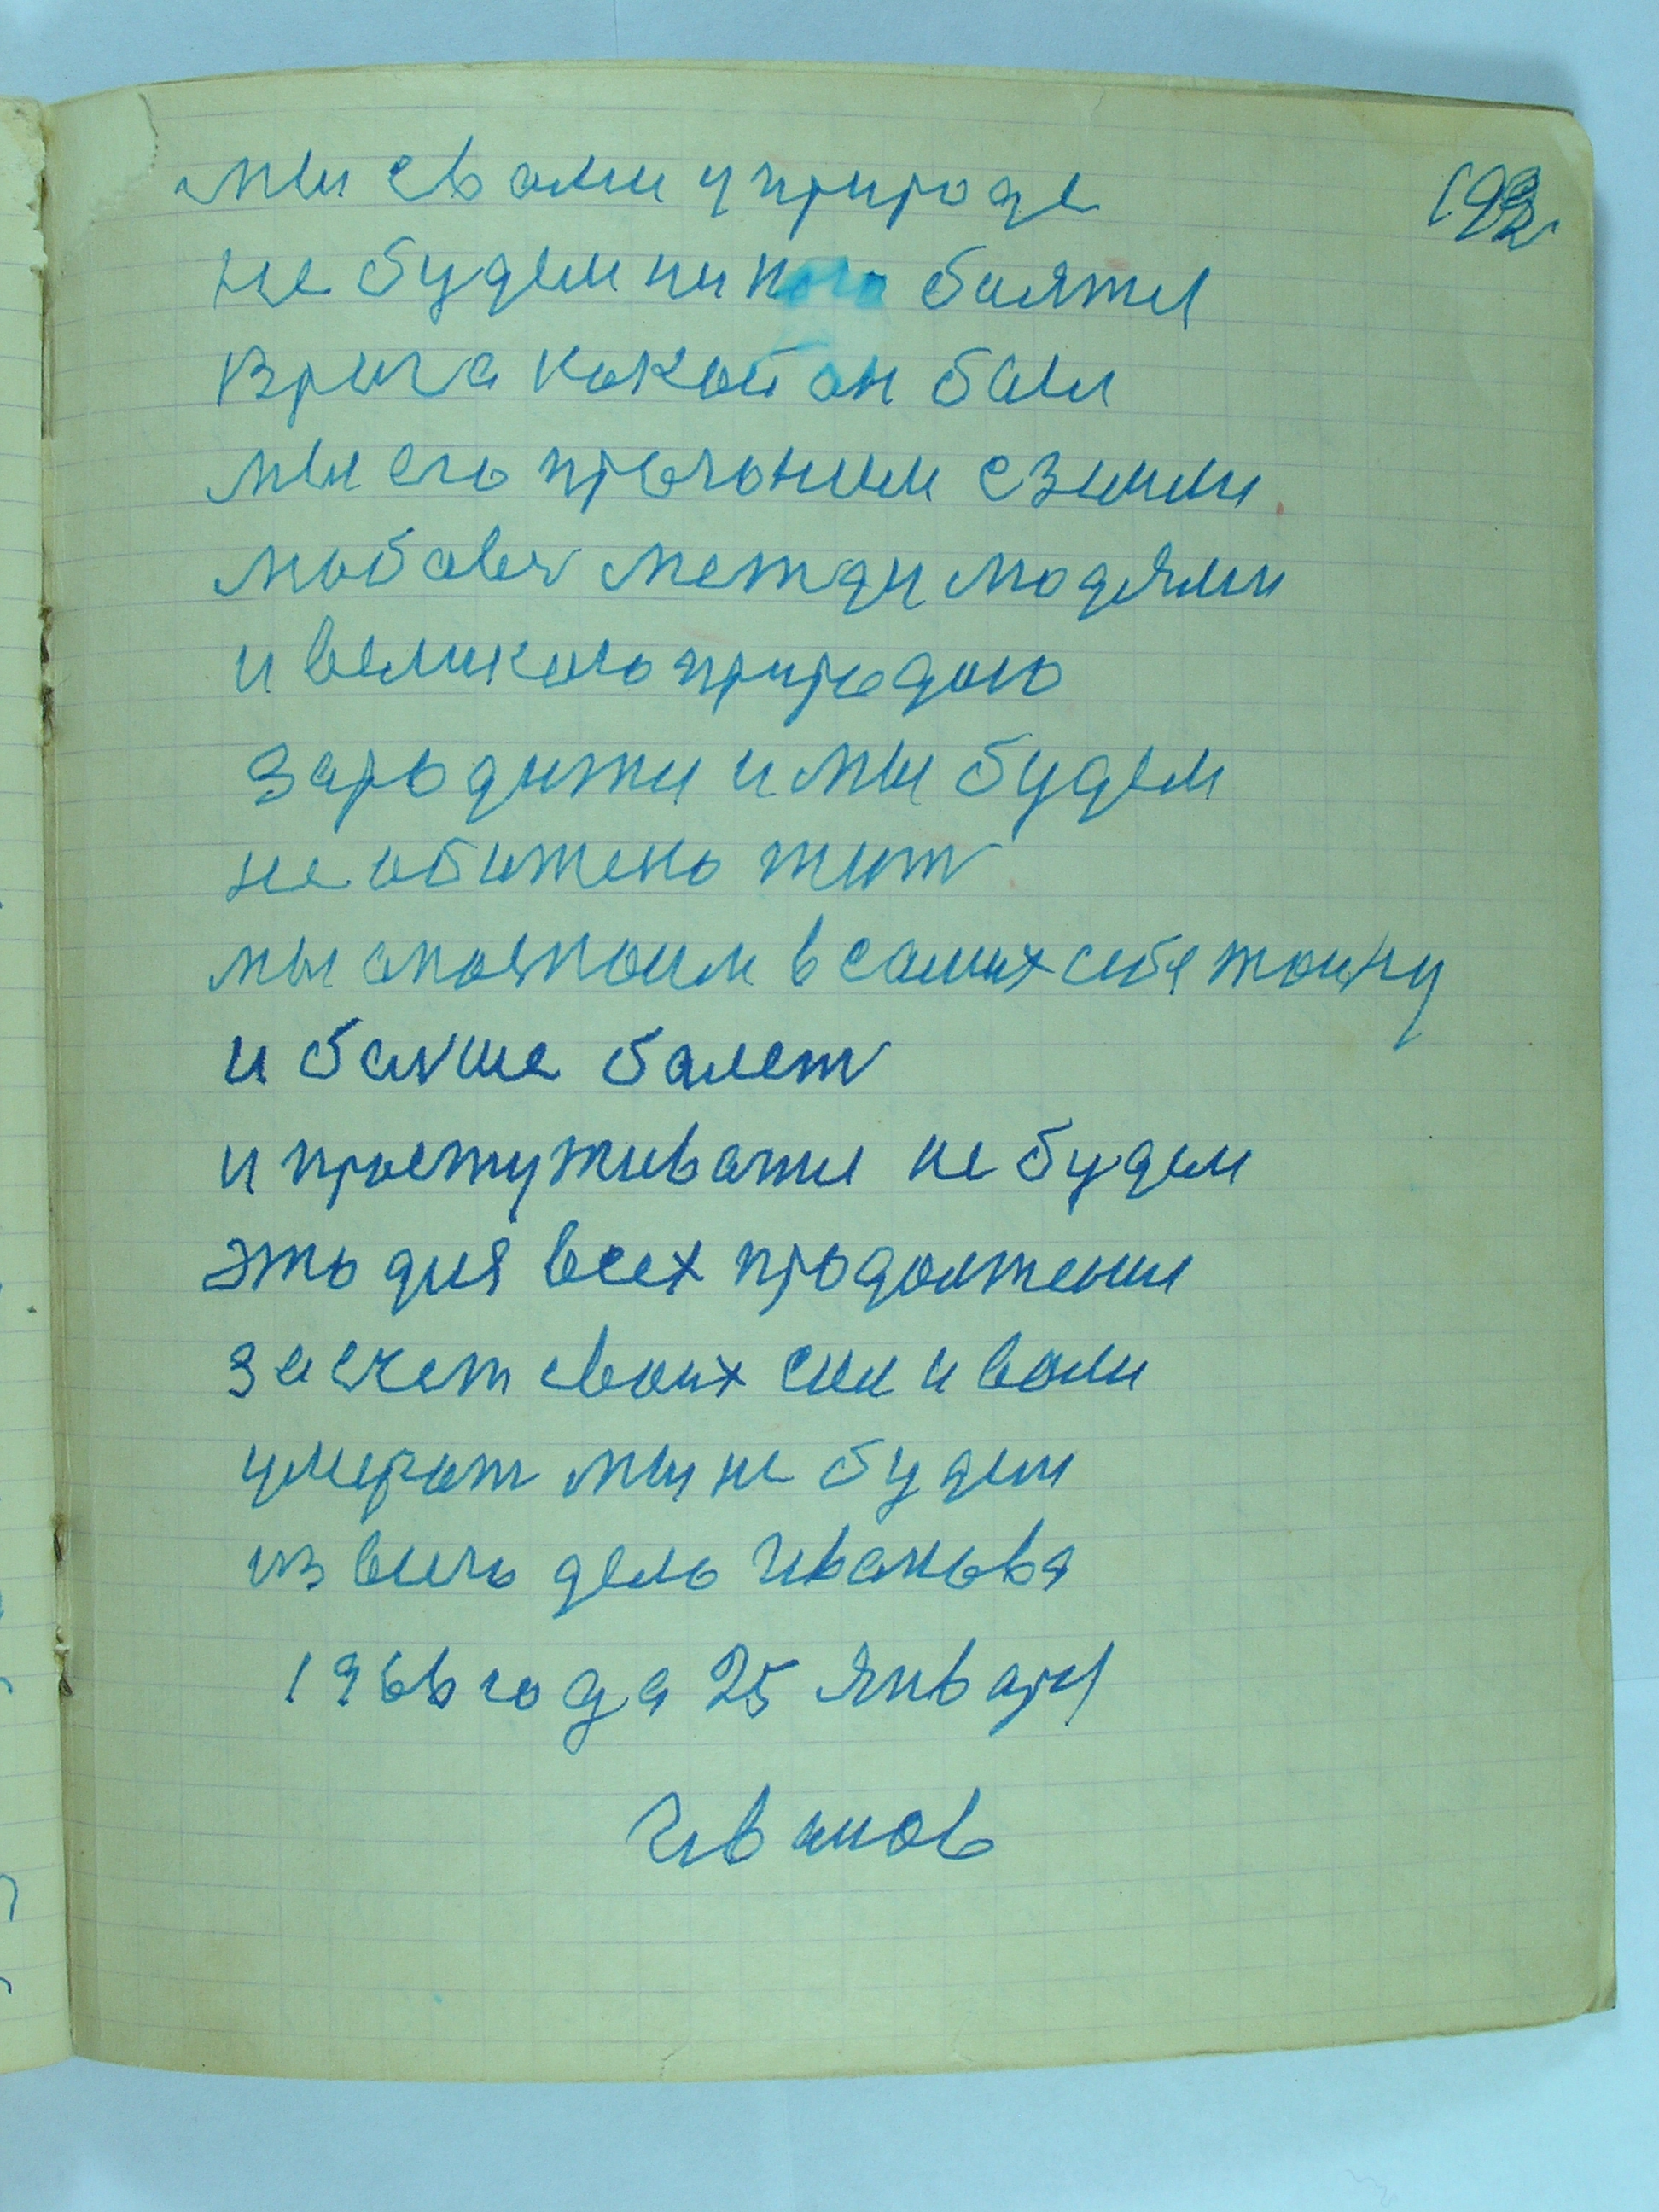 192
мы свами у природе
не будем никого боятся
врага какой он бы
мы его прогоним сземли
любовь между людями
и великою природою
зародитси и мы будем
не обижено жит
мы в самих себе
и больше болет
и простуживатси не будем
это для всех продолжения
за счет своих сил и воли
умерат мы не будем
из всего дело Иванова
1966 года 25 января
Иванов